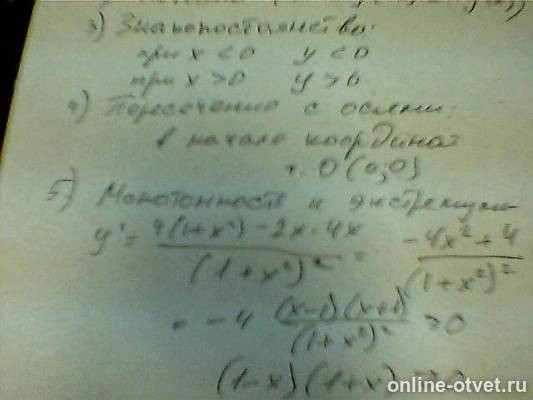 3) Знакопостоянство:
при x < 0 y < 0
при x > 0 y > 0
4) Пересечение с осями:
в начале координат
т. O (0;0)
5) Монотонность и экстремумы
y' = 4(1+x²) - 2x·4x / (1+x²)² = -4x²+4 / (1+x²)²
= -4 (x-1)(x+1) / (1+x²)² > 0
(1-x)(1+x) > 0
online-otvet.ru